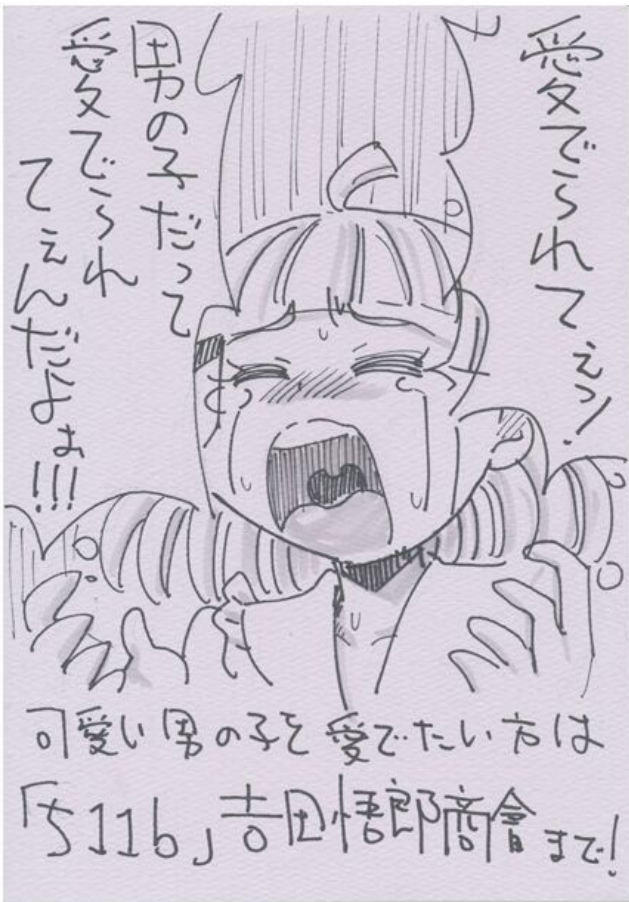 愛でられてぇッ!
男の子だって
愛でられ
てぇんだよぉ
!!!
可愛い男の子を愛でたい方は
「ち11b」吉田悟郎商會まで!